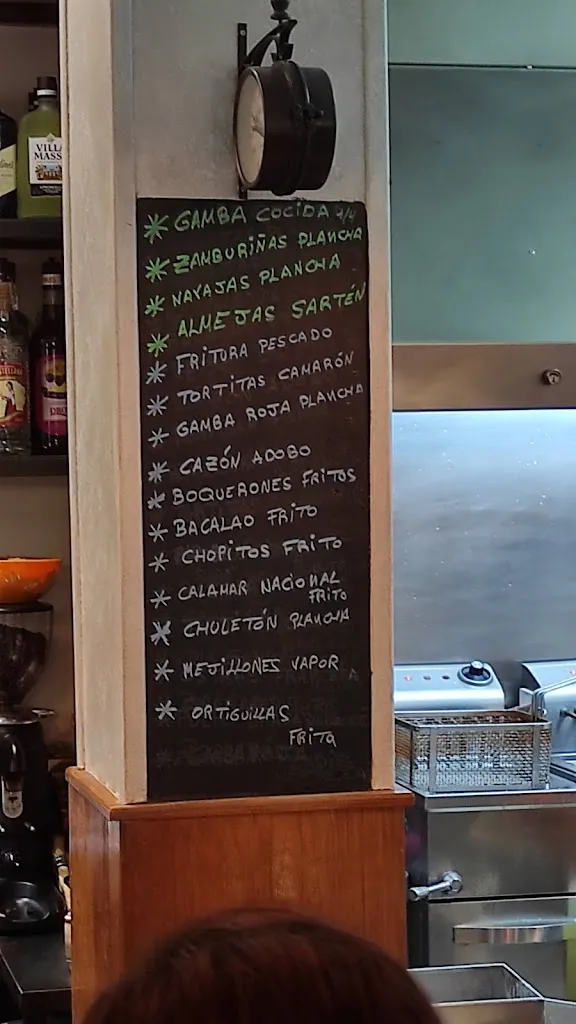 VILLA
MASSA
* GAMBA COCIDA
* ZAMBURIÑAS PLANCHA
* NAVAJAS PLANCHA
* ALMEJAS SARTÉN
* FRITURA PESCADO
* TORTITAS CAMARÓN
* GAMBA ROJA PLANCHA
* CAZÓN ADOBO
* BOQUERONES FRITOS
* BACALAO FRITO
* CHOPITOS FRITO
* CALAMAR NACIONAL
FRITO
* CHULETÓN PLANCHA
* MEJILLONES VAPOR
* ORTIGUILLAS
FRITA